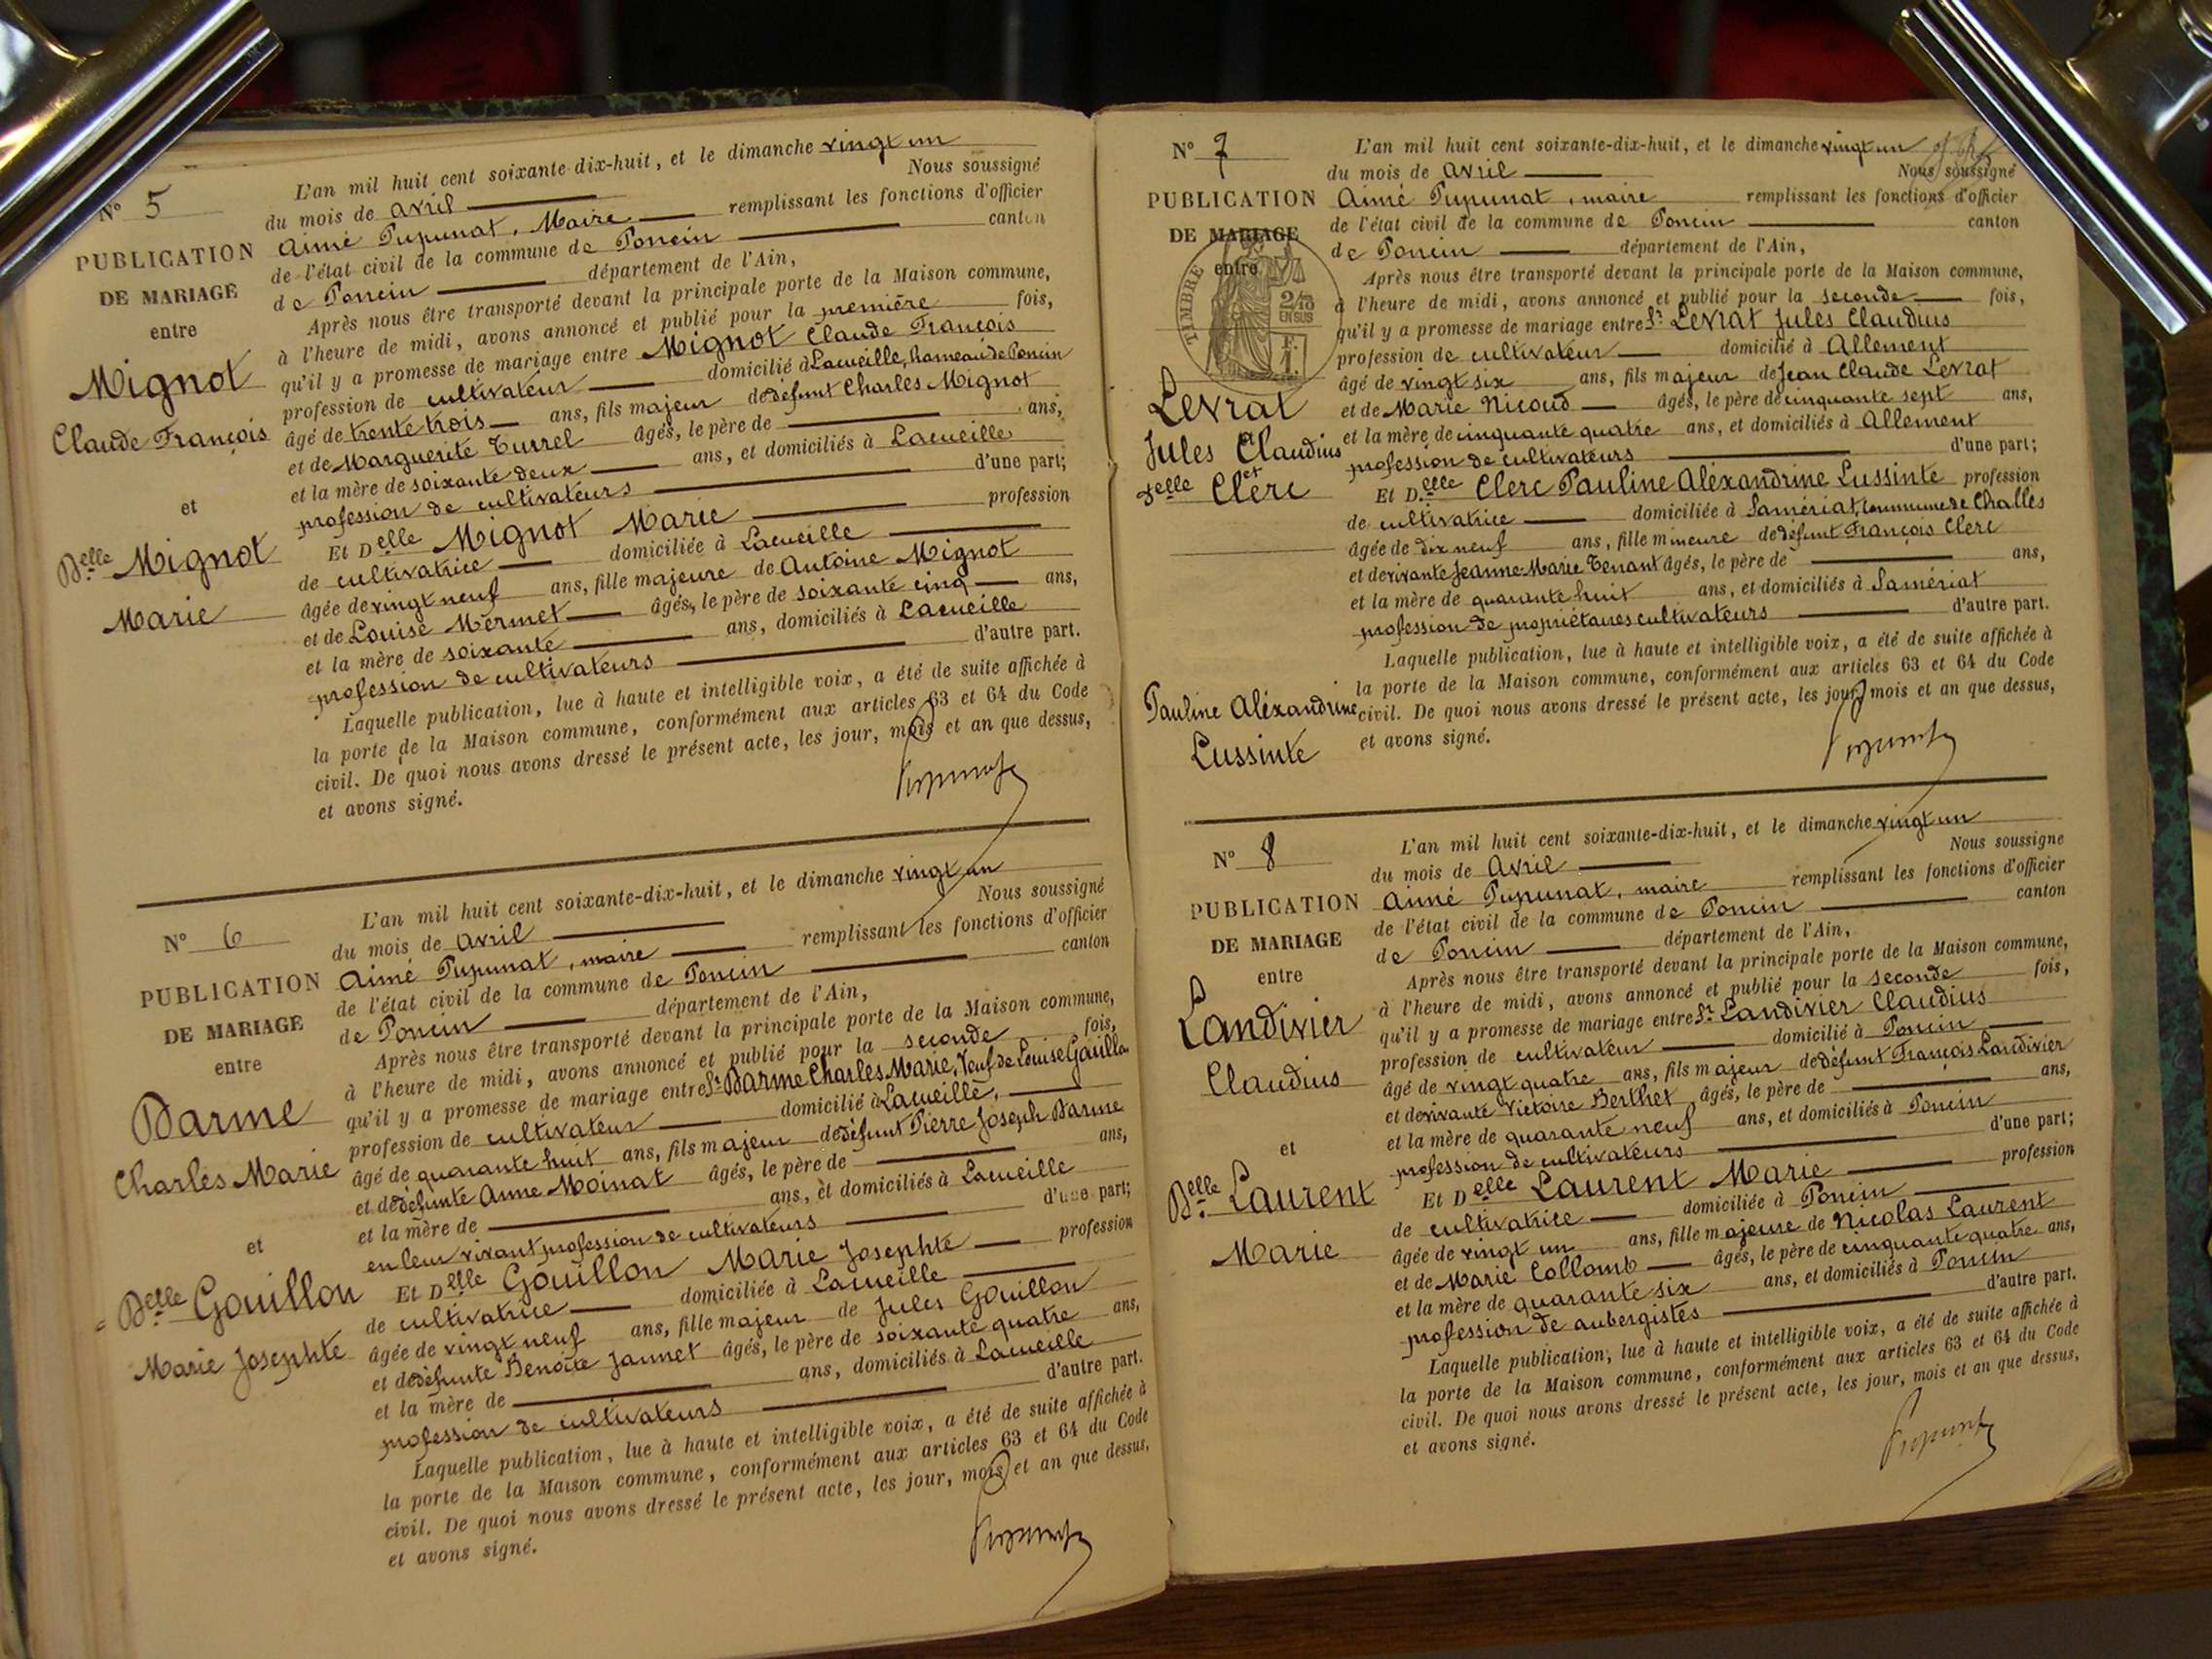 N° 5
PUBLICATION
DE MARIAGE
entre
Mignot
Claude François
et
Delle Mignot
Marie
L'an mil huit cent soixante-dix-huit, et le dimanche vingt un
du mois de avril Nous soussigné
Aimé Pupunat, Maire remplissant les fonctions d'officier
de l'état civil de la commune de Poncin canton
de Poncin département de l'Ain,
Après nous être transporté devant la principale porte de la Maison commune,
à l'heure de midi, avons annoncé et publié pour la première fois,
qu'il y a promesse de mariage entre Mignot Claude François
profession de cultivateur domicilié à Lacueille, hameau de Poncin
âgé de trente trois ans, fils majeur de défunt Charles Mignot
et de Marguerite Turrel âgés, le père de ans,
et la mère de soixante deux ans, et domiciliés à Lacueille
profession de cultivateurs d'une part;
Et Delle Mignot Marie profession
de cultivatrice domiciliée à Lacueille
âgée de vingt neuf ans, fille majeure de Antoine Mignot
et de Louise Mermet âgés, le père de soixante cinq ans,
et la mère de soixante ans, domiciliés à Lacueille
profession de cultivateurs d'autre part.
Laquelle publication, lue à haute et intelligible voix, a été de suite affichée à
la porte de la Maison commune, conformément aux articles 63 et 64 du Code
civil. De quoi nous avons dressé le présent acte, les jour, mois et an que dessus,
et avons signé.
Pupunat
N° 6
PUBLICATION
DE MARIAGE
entre
Darme
Charles Marie
et
Delle Gouillon
Marie Josephte
L'an mil huit cent soixante-dix-huit, et le dimanche vingt un
du mois de avril Nous soussigné
Aimé Pupunat, maire remplissant les fonctions d'officier
de l'état civil de la commune de Poncin canton
de Poncin département de l'Ain,
Après nous être transporté devant la principale porte de la Maison commune,
à l'heure de midi, avons annoncé et publié pour la seconde fois,
qu'il y a promesse de mariage entre Sr Darme Charles Marie, Veuf de Louise Gouillon
profession de cultivateur domicilié à Lacueille,
âgé de quarante huit ans, fils majeur de défunt Pierre Joseph Darme
et de défunte Anne Moinat âgés, le père de ans,
et la mère de ans, et domiciliés à Lacueille
en leur vivant profession de cultivateurs d'une part;
Et Delle Gouillon Marie Josephte profession
de cultivatrice domiciliée à Lacueille
âgée de vingt neuf ans, fille majeur de Jules Gouillon
et de défunte Benoîte Jannet âgés, le père de soixante quatre ans,
et la mère de ans, domiciliés à Lacueille
profession de cultivateurs d'autre part.
Laquelle publication, lue à haute et intelligible voix, a été de suite affichée à
la porte de la Maison commune, conformément aux articles 63 et 64 du Code
civil. De quoi nous avons dressé le présent acte, les jour, mois et an que dessus,
et avons signé.
Pupunat
N° 7
PUBLICATION
DE MARIAGE
entre
TIMBRE
2/10
EN SUS
F.
1.
Levrat
Jules Claudius
et
Delle Clerc
Pauline Aléxandrine
Lussinte
L'an mil huit cent soixante-dix-huit, et le dimanche vingt un
du mois de avril Nous soussigné
Aimé Pupunat, maire remplissant les fonctions d'officier
de l'état civil de la commune de Poncin canton
de Poncin département de l'Ain,
Après nous être transporté devant la principale porte de la Maison commune,
à l'heure de midi, avons annoncé et publié pour la seconde fois,
qu'il y a promesse de mariage entre Sr Levrat Jules Claudius
profession de cultivateur domicilié à Allement
âgé de vingt six ans, fils majeur de Jean Claude Levrat
et de Marie Nicoud âgés, le père de cinquante sept ans,
et la mère de cinquante quatre ans, et domiciliés à Allement
profession de cultivateurs d'une part;
Et Delle Clerc Pauline Aléxandrine Lussinte profession
de cultivatrice domiciliée à Samériat, commune de Challes
âgée de dix neuf ans, fille mineure de défunt François Clerc
et de vivante Jeanne-Marie Tenant âgés, le père de ans,
et la mère de quarante huit ans, et domiciliés à Samériat
profession de propriétaires cultivateurs d'autre part.
Laquelle publication, lue à haute et intelligible voix, a été de suite affichée à
la porte de la Maison commune, conformément aux articles 63 et 64 du Code
civil. De quoi nous avons dressé le présent acte, les jour, mois et an que dessus,
et avons signé.
Pupunat
N° 8
PUBLICATION
DE MARIAGE
entre
Landivier
Claudius
et
Delle Laurent
Marie
L'an mil huit cent soixante-dix-huit, et le dimanche vingt un
du mois de Avril Nous soussigné
Aimé Pupunat, maire remplissant les fonctions d'officier
de l'état civil de la commune de Poncin canton
de Poncin département de l'Ain,
Après nous être transporté devant la principale porte de la Maison commune,
à l'heure de midi, avons annoncé et publié pour la seconde fois,
qu'il y a promesse de mariage entre Sr Landivier Claudius
profession de cultivateur domicilié à Poncin
âgé de vingt quatre ans, fils majeur de défunt François Landivier
et de vivante Victoire Berthet âgés, le père de ans,
et la mère de quarante neuf ans, et domiciliés à Poncin
profession de cultivateurs d'une part;
Et Delle Laurent Marie profession
de cultivatrice domiciliée à Poncin
âgée de vingt un ans, fille majeure de Nicolas Laurent
et de Marie Collomb âgés, le père de cinquante quatre ans,
et la mère de quarante six ans, et domiciliés à Poncin
profession de aubergistes d'autre part.
Laquelle publication, lue à haute et intelligible voix, a été de suite affichée à
la porte de la Maison commune, conformément aux articles 63 et 64 du Code
civil. De quoi nous avons dressé le présent acte, les jour, mois et an que dessus,
et avons signé.
Pupunat